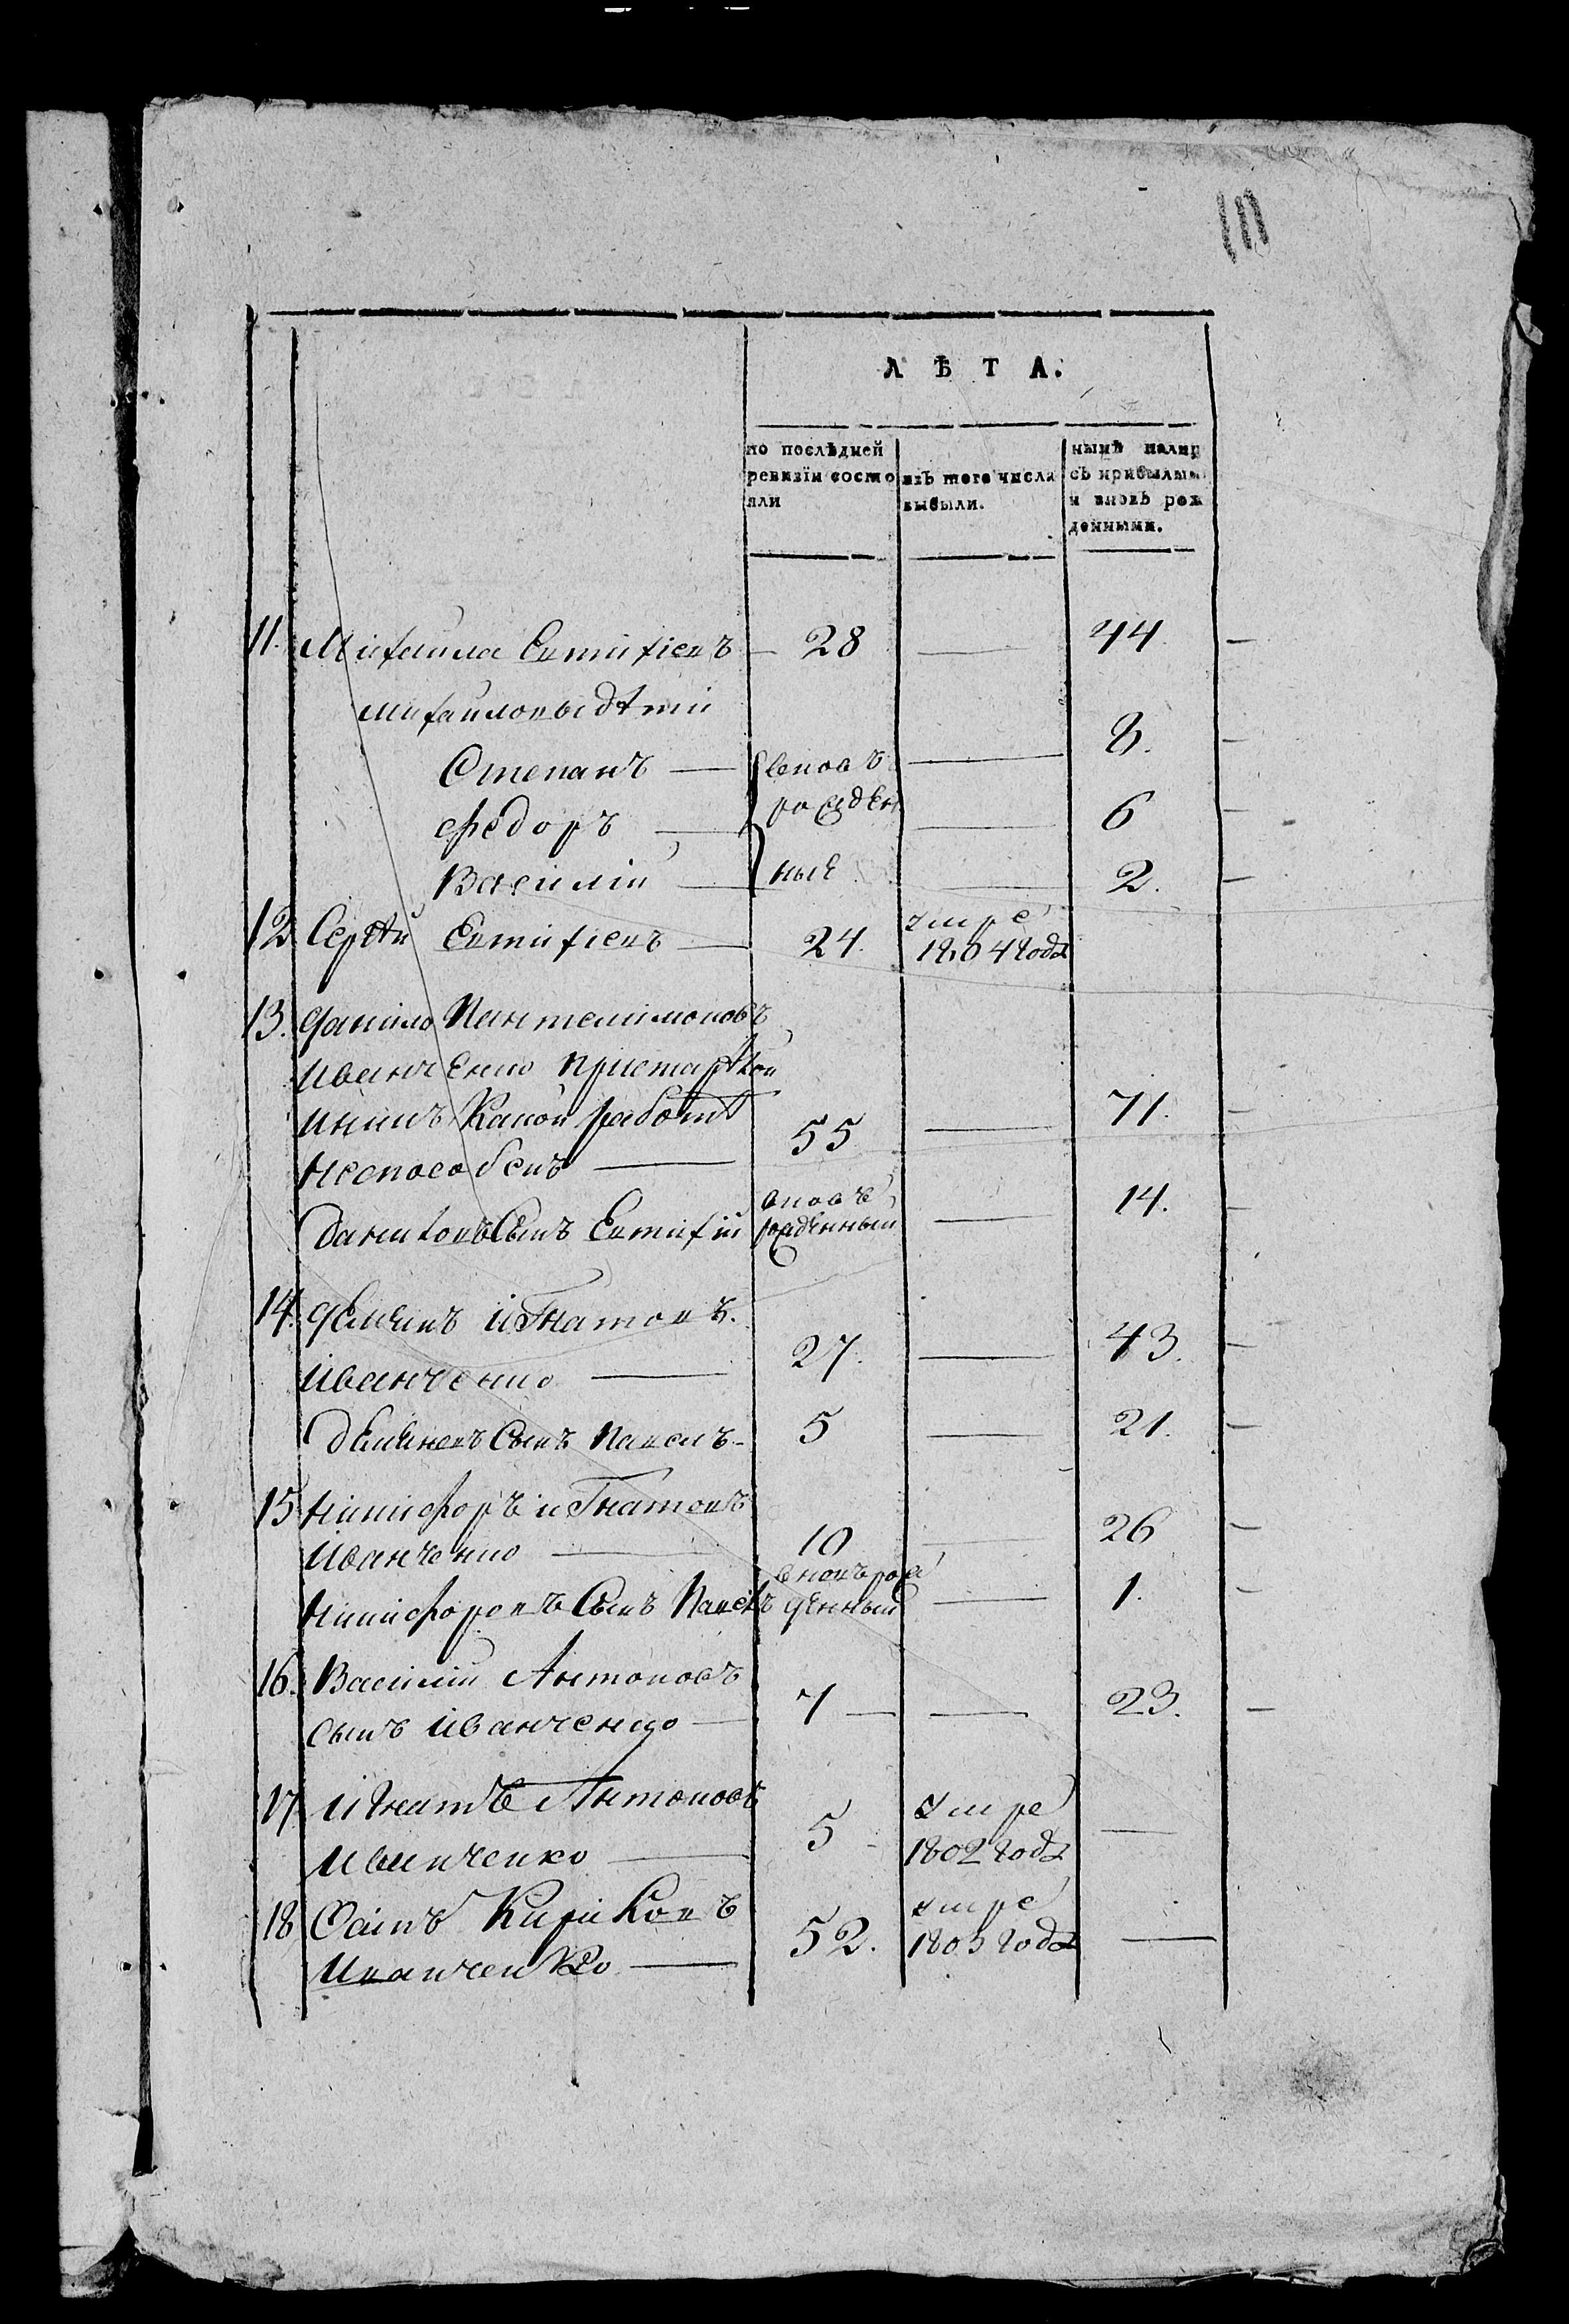 111
ЛѢТА.
по послѣдней ревизіи состояли
изъ того числа выбыли.
нынѣ налиц съ прибылым и вновь рожденными.
11. Михаила Евтихіевъ — 28 — 44. —
Михаиловы дѣти
Степанъ — вновь — 8. —
Федоръ — рожден — 6 —
Василій — ные — 2. —
12 Сергѣй Евтихіевъ — 24. умре 1804 года
13. Данило Пантелимоновъ
Иванченко
работѣ 55 — 71. —
неспособенъ —
Даниловъ сынъ Евтихій вновь рожденный — 14. —
14. Демьянъ Игнатовъ.
Иванченко — 27. — 43. —
Демьяновъ сынъ Павелъ - 5 — 21. —
15 Никифоръ Игнатовъ
Иванченко — 10 — 26 —
Никифоровъ сынъ Павелъ вновь рожденный — 1. —
16. Василій Антоновъ
сынъ Иванченко — 7 — — 23. —
17 Игнатъ Антоновъ
Иванченко — 5 - умре 1802 года —
18 Кириковъ
Иванченко — 52. умре 1805 года —